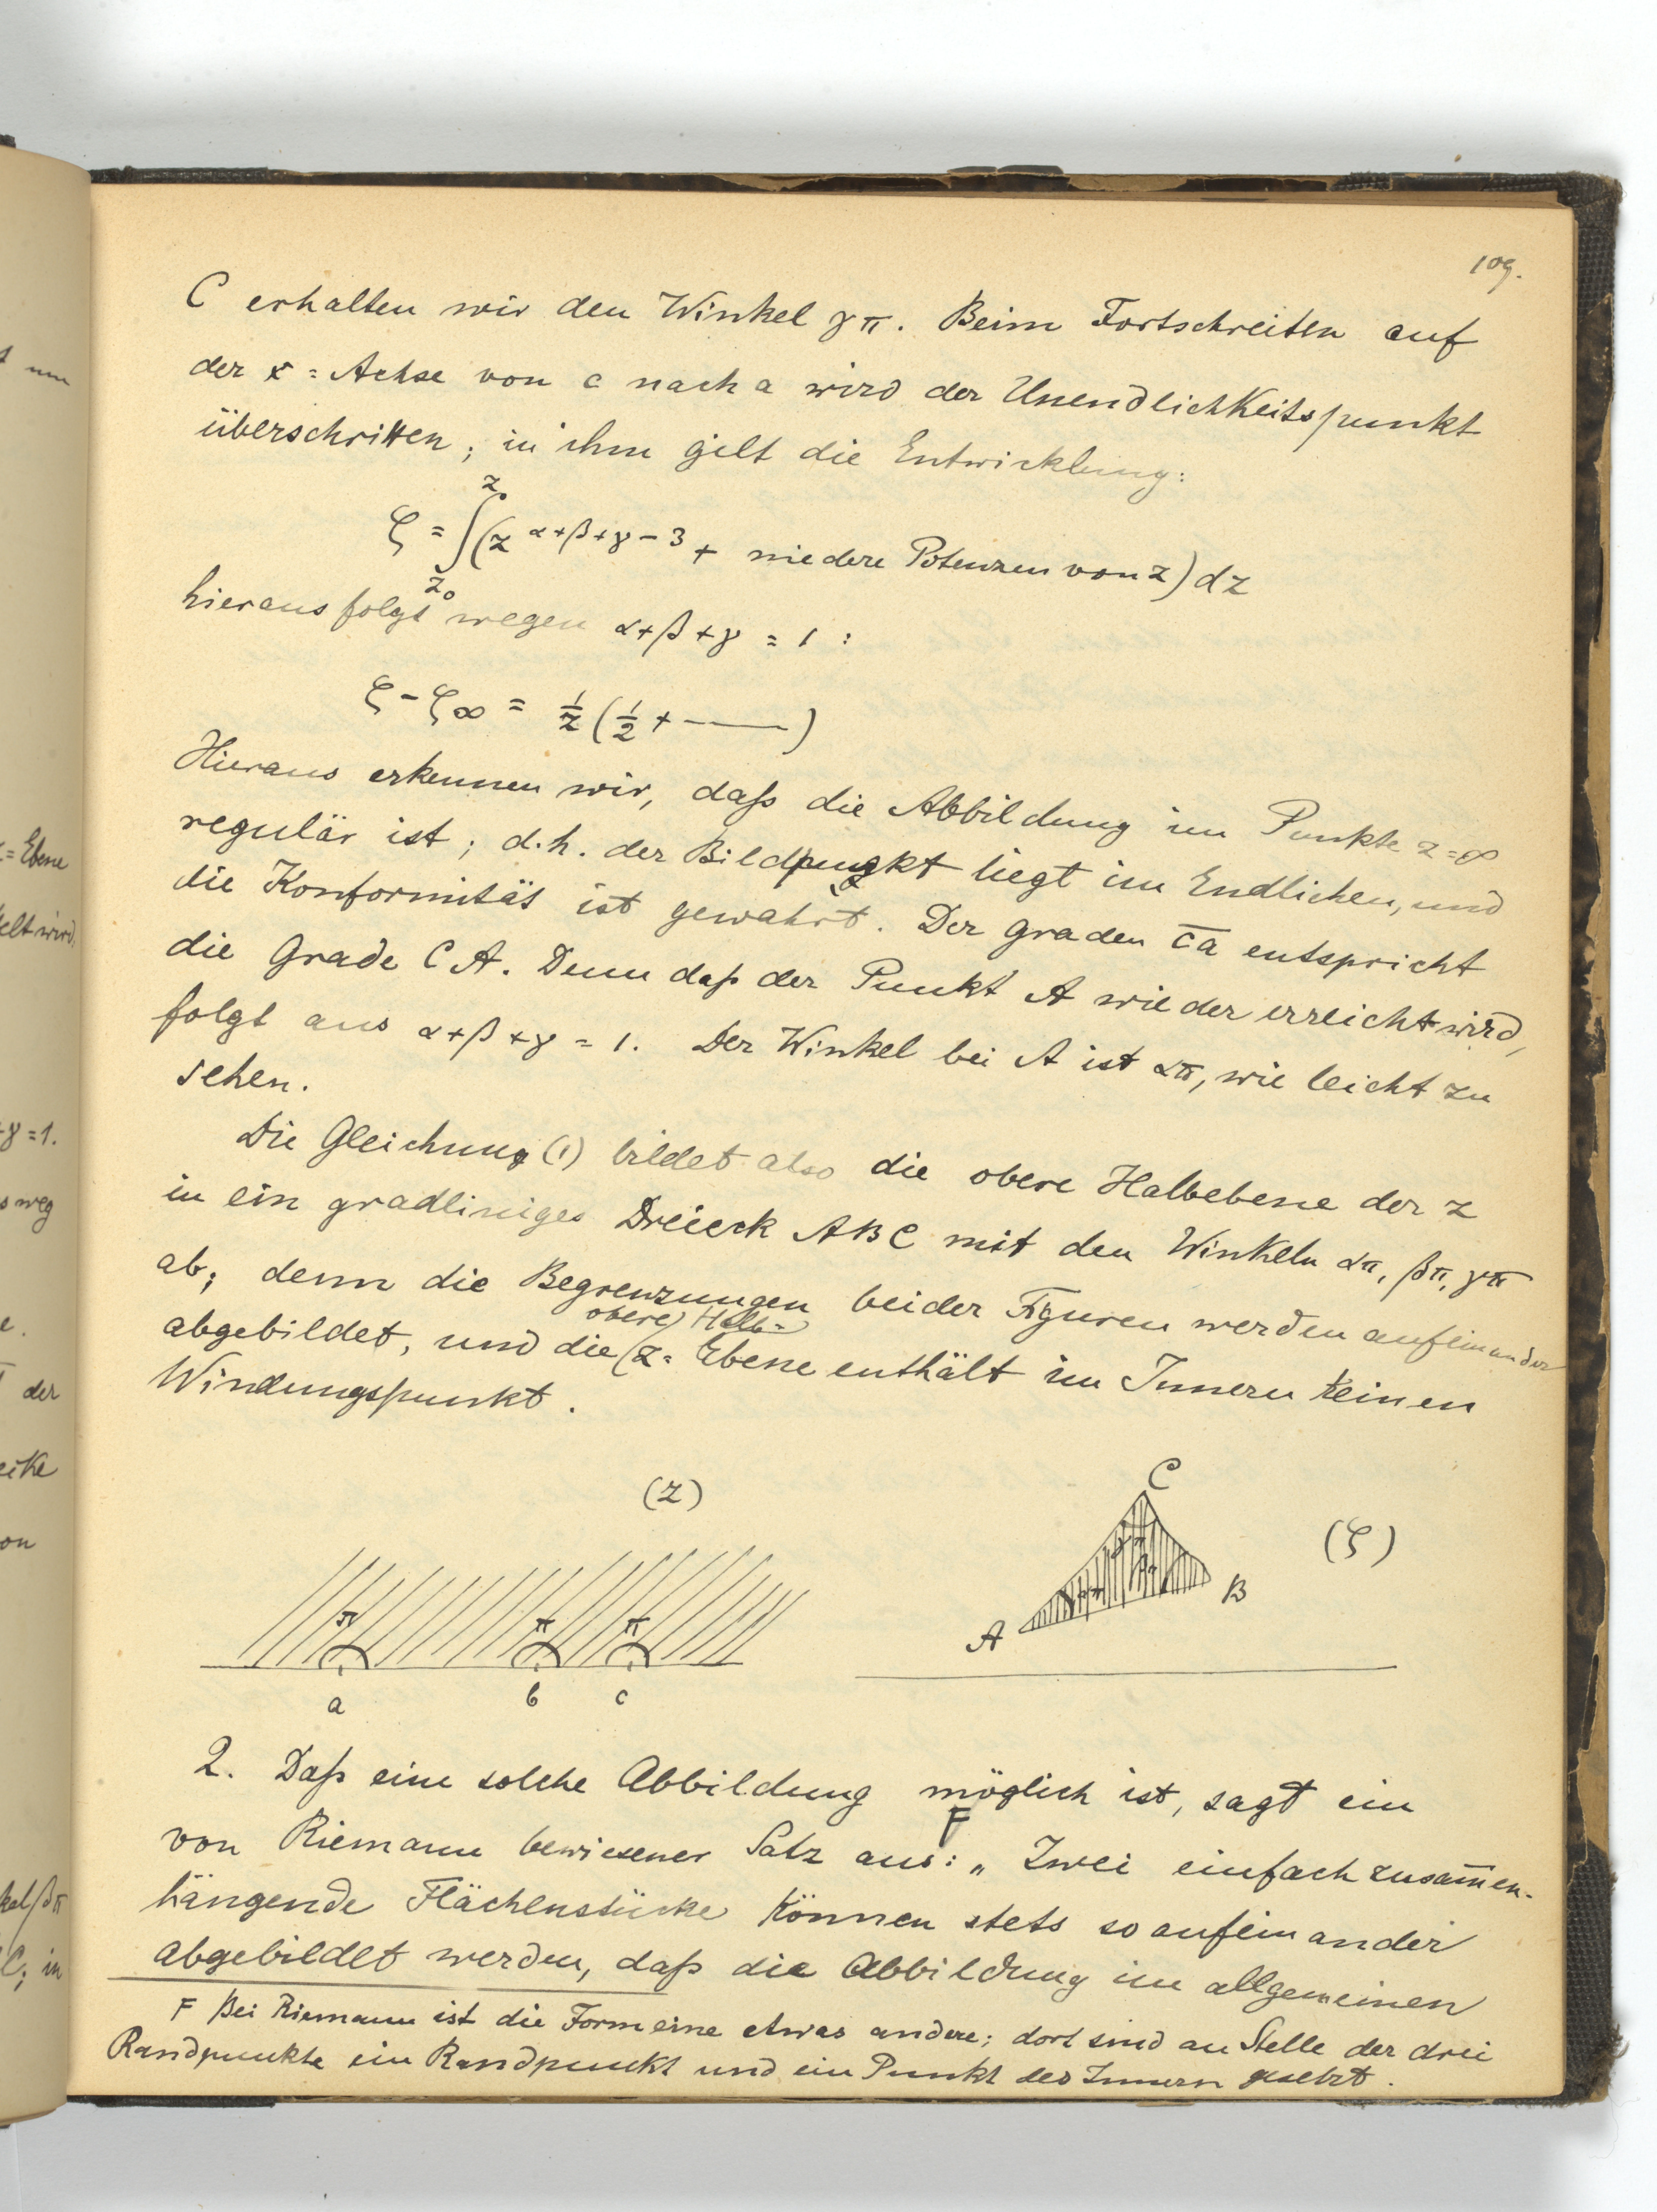 109.
C erhalten wir den Winkel γπ. Beim Fortschreiten auf
der x=Achse von c nach a wird der Unendlichkeitspunkt
überschritten; in ihm gilt die Entwicklung:
ζ = ∫_{z₀}^{z} (z^{α+β+γ-3} + niedere Potenzen von z) dz
hieraus folgt wegen α+β+γ = 1 :
ζ - ζ∞ = 1/z (1/2 + ——)
Hieraus erkennen wir, daß die Abbildung im Punkte z=∞
regulär ist; d.h. der Bildpunkt liegt im Endlichen, und
die Konformität ist gewahrt. Der graden c̅a̅ entspricht
die Grade CA. Denn daß der Punkt A wieder erreicht wird,
folgt aus α+β+γ = 1. Der Winkel bei A ist απ, wie leicht zu
sehen.
Die Gleichung (1) bildet also die obere Halbebene der z
in ein gradliniges Dreieck ABC mit den Winkeln απ, βπ, γπ
ab; denn die Begrenzungen beider Figuren werden aufeinander
obere Halb=
abgebildet, und die z=Ebene enthält im Innern keinen
Windungspunkt.
(z)
π π π
a b c
C
(ζ)
B
A
2. Daß eine solche Abbildung möglich ist, sagt ein
von Riemann bewiesener Satz aus: F „Zwei einfach zusam̅en-
hängende Flächenstücke können stets so aufeinander
abgebildet werden, daß die Abbildung im allgemeinen
F Bei Riemann ist die Form eine etwas andere; dort sind an Stelle der drei
Randpunkte ein Randpunkt und ein Punkt des Innern gesetzt.
t um
z=Ebene
elt wird.
+γ=1.
s weg
e.
der
eike
on
kel βπ
C; in